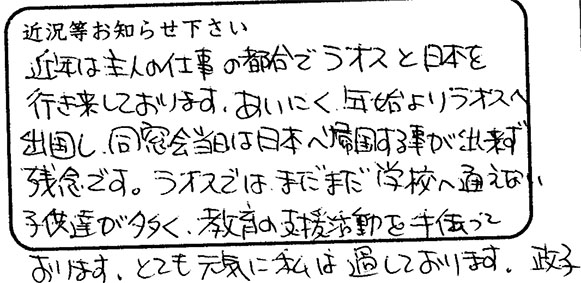 近況等お知らせ下さい
近年は主人の仕事の都合でラオスと日本を
行き来しております。あいにく、年始よりラオスへ
出国し、同窓会当日は日本へ帰国する事が出来ず
残念です。ラオスではまだまだ学校へ通えない
子供達が多く、教育の支援活動を手伝って
おります。とても元気に私は過しております。 政子